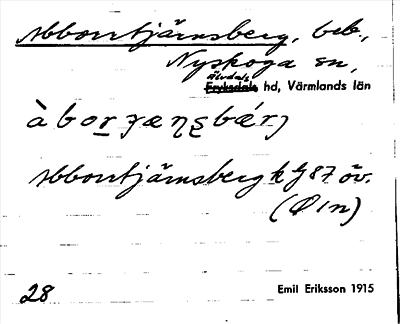 Abborrtjärnsberg, beb.,
Nyskoga sn,
Älvdals
Fryksdals hd, Värmlands län
Abborrtjärnsberg k G 87 öv.
(Ö 1 n)
28 Emil Eriksson 1915